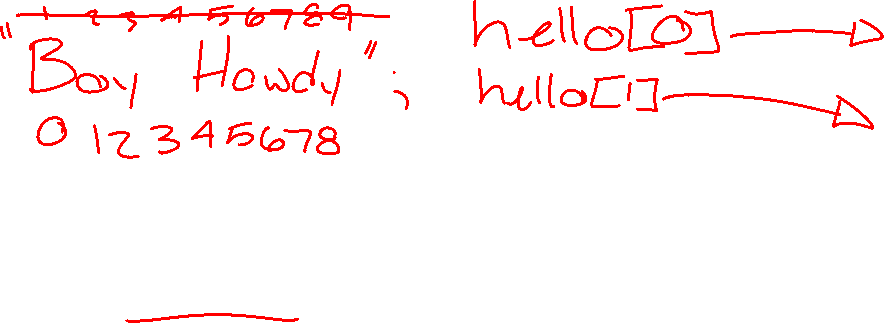 1 2 3 4 5 6 7 8 9
"Boy Howdy";
0 1 2 3 4 5 6 7 8
hello[0]
hello[1]